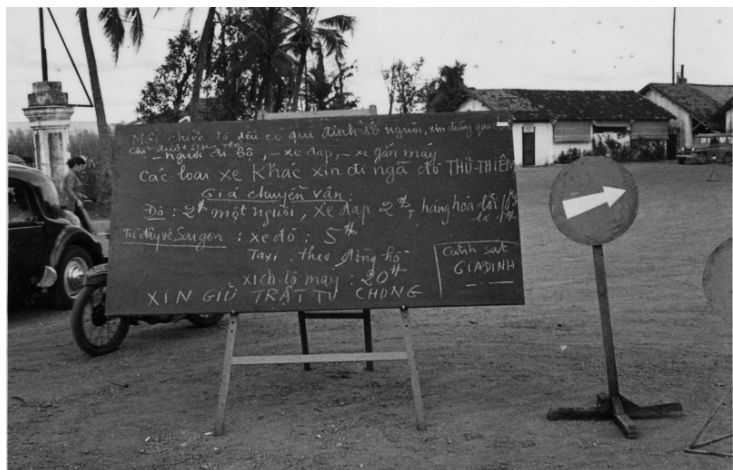 Mỗi chiếc đò đều có qui định số người, xin đừng quá
Chỉ được qua đò
- người đi bộ, - xe đạp, - xe gắn máy
Các loại xe khác xin đi ngã đò THỦ-THIÊM
Giá chuyên vận:
Đò : 2đ một người, xe đạp 2đ, hàng hóa
Từ đây về Saigon : xe đò : 5đ
Taxi : theo đồng hồ
xích-lô máy : 20đ
Cảnh sát
GIADINH
XIN GIỮ TRẬT TỰ CHUNG